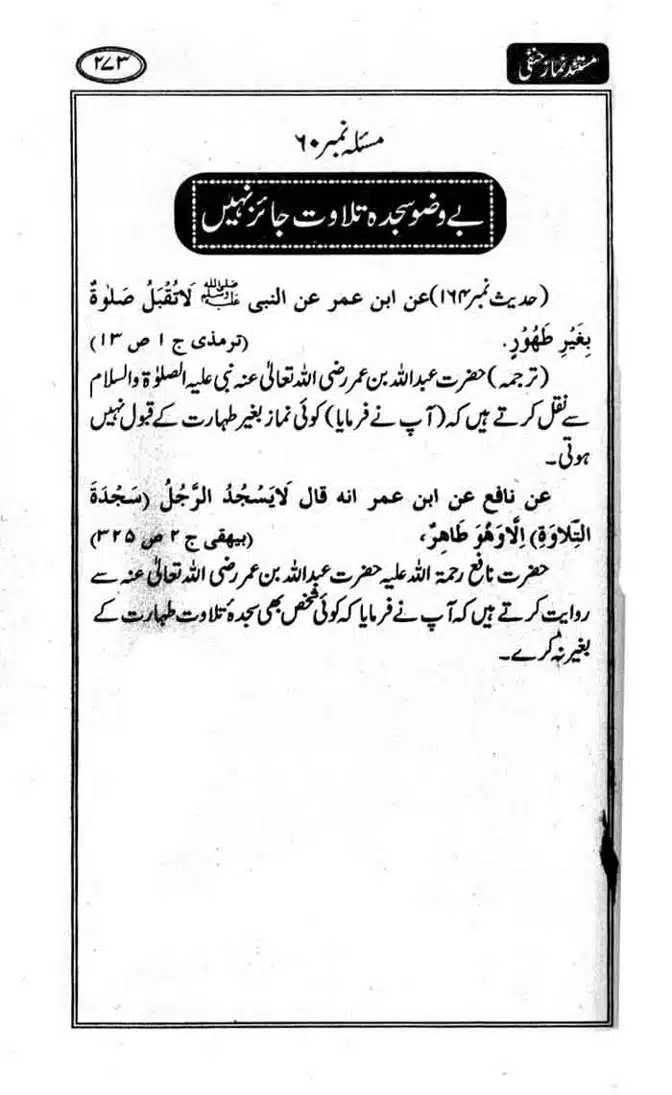 ۲۷۳
مستند نماز حنفی
مسئلہ نمبر ۶۰
بے وضو سجدہ تلاوت جائز نہیں
(حدیث نمبر ۱۶۴) عن ابن عمر عن النبی ﷺ لَاتُقْبَلُ صَلٰوةٌ
بِغَيْرِ طَهُوْرٍ. (ترمذی ج ۱ ص ۱۳)
(ترجمہ) حضرت عبداللہ بن عمر رضی اللہ تعالیٰ عنہ نبی علیہ الصلوٰۃ والسلام
سے نقل کرتے ہیں کہ (آپ نے فرمایا) کوئی نماز بغیر طہارت کے قبول نہیں
ہوتی۔
عن نافع عن ابن عمر انه قال لَايَسْجُدُ الرَّجُلُ (سَجْدَةَ
التِّلَاوَةِ) اِلَّاوَهُوَ طَاهِرٌ، (بیهقی ج ۲ ص ۳۲۵)
حضرت نافع رحمۃ اللہ علیہ حضرت عبداللہ بن عمر رضی اللہ تعالیٰ عنہ سے
روایت کرتے ہیں کہ آپ نے فرمایا کہ کوئی شخص بھی سجدۂ تلاوت طہارت کے
بغیر نہ کرے۔